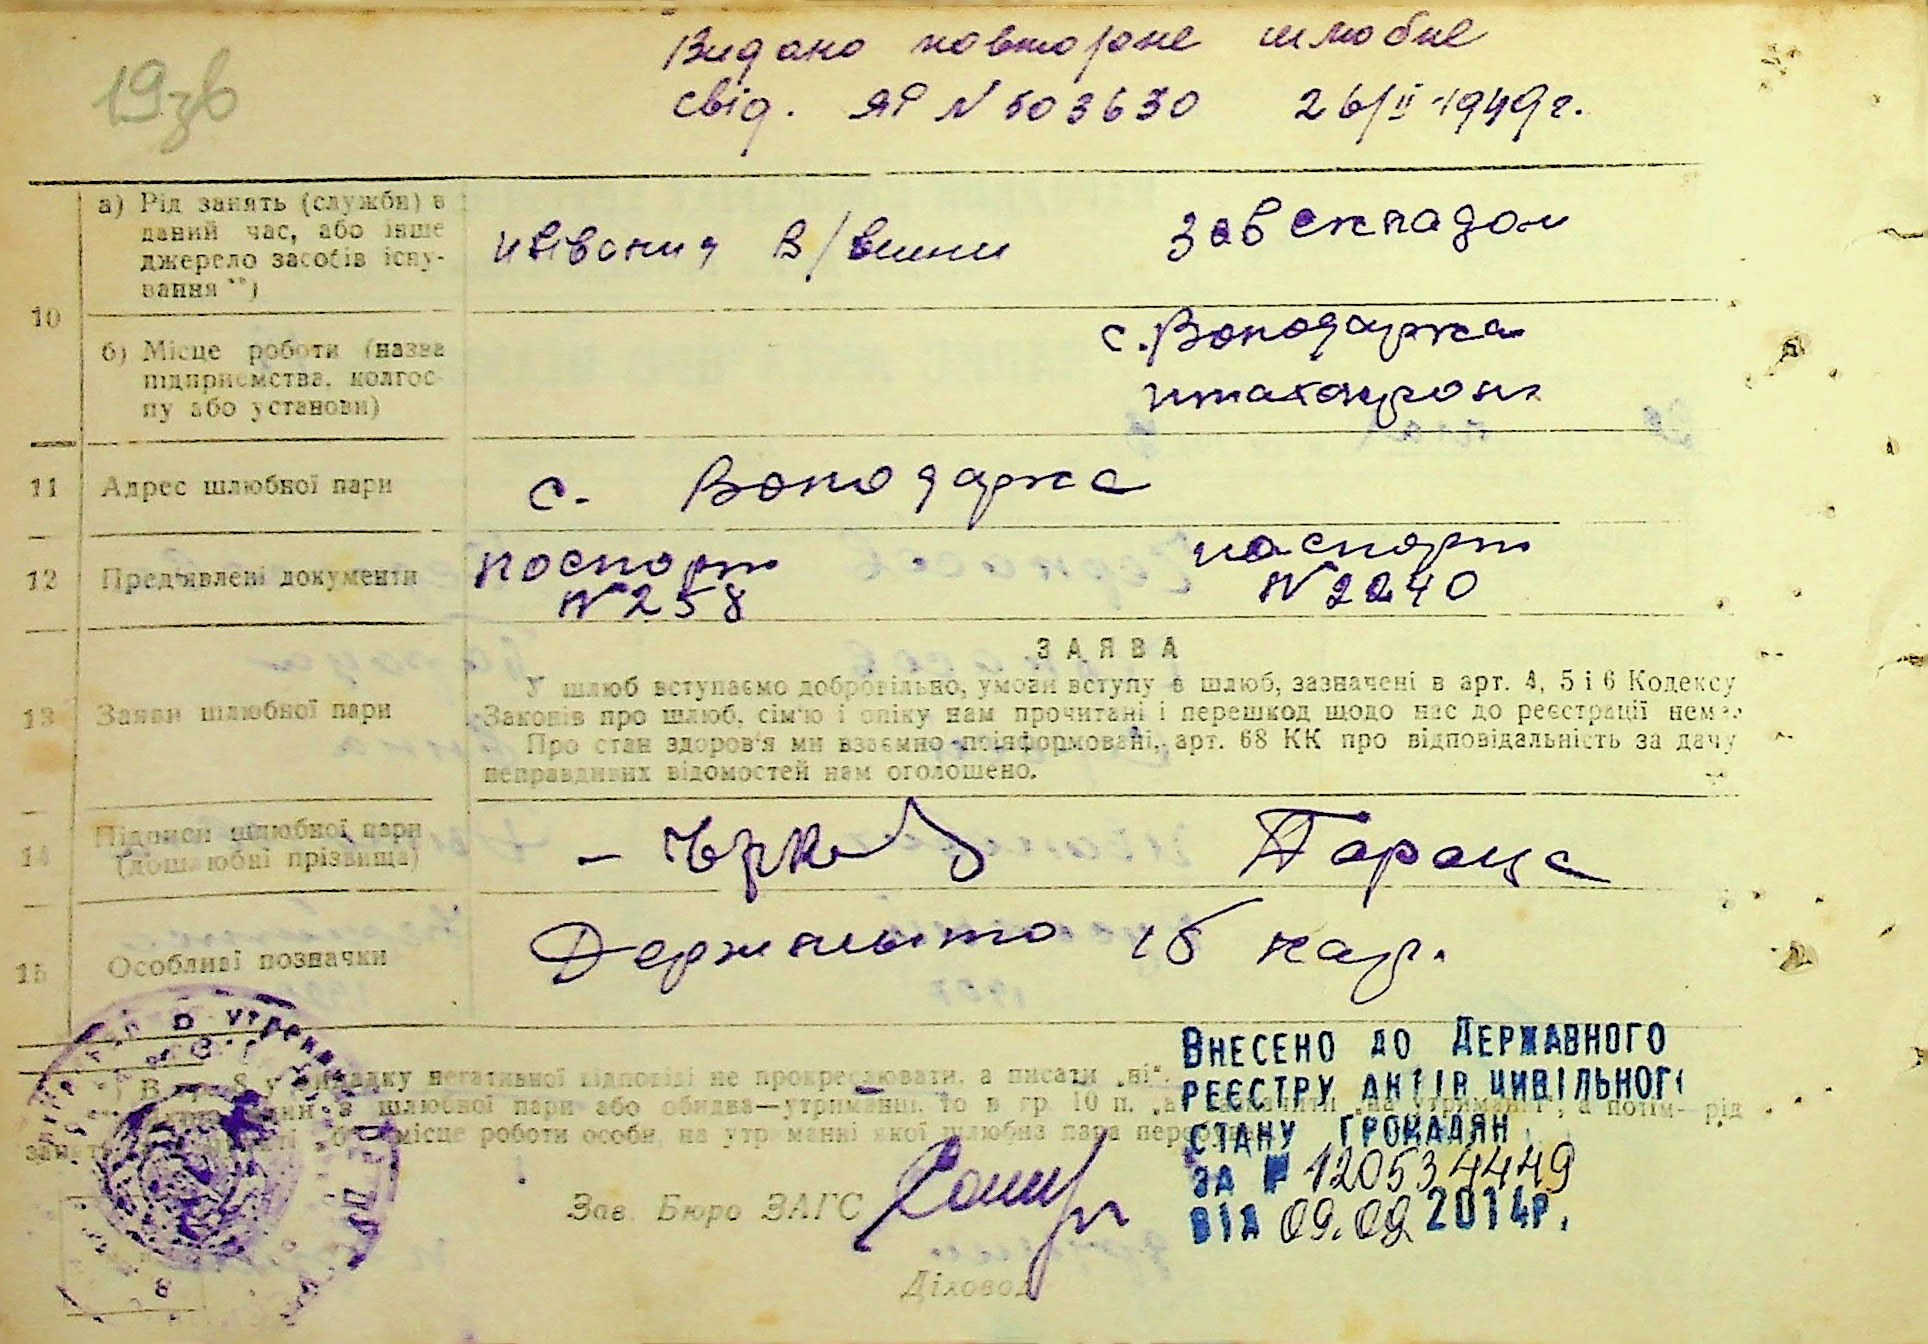 19зв
Видано повторне шлюбне
свід. ЯР N 503630 26/II-1949г.
10
а) Рід занять (служби) в
даний час, або інше
джерело засобів існу-
вання **)
В/
завскладом
б) Місце роботи (назва
підприємства, колгос-
пу або установи)
с. Володарка
11 Адрес шлюбної пари
с. Володарка
12 Пред'явлені документи
паспорт паспорт
N 258 N 2240
ЗАЯВА
13 Заяви шлюбної пари
У шлюб вступаємо добровільно, умови вступу в шлюб, зазначені в арт. 4, 5 і 6 Кодексу
Законів про шлюб, сім'ю і опіку нам прочитані і перешкод щодо нас до реєстрації нема.
Про стан здоров'я ми взаємно поінформовані, арт. 68 КК про відповідальність за дачу
неправдивих відомостей нам оголошено.
14 Підписи шлюбної пари
(дошлюбні прізвища)
Параца
15 Особливі позначки
Держмыто 15 кар.
В гр. 8 у випадку негативної відповіді не прокреслювати, а писати „ні“.
з шлюбної пари або обидва—утриманці, то в гр. 10 п. „а“ зазначити „на утриманні“, а потім—рід
місце роботи особи, на утриманні якої шлюбна пара
Зав. Бюро ЗАГС
Діловод
Внесено до Державного
реєстру актів цивільного
стану громадян
за № 120534449
від 09.09.2014р.